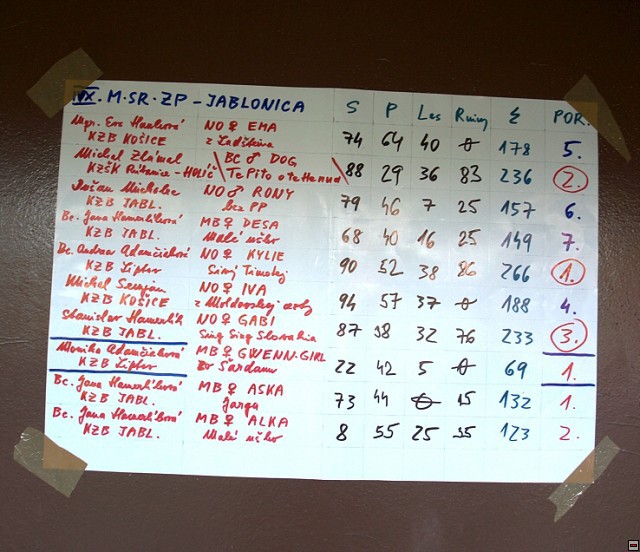 IX. M.SR.ZP - JABLONICA S P Les Ruiny Σ POR.
Mgr. Eva
KZB KOŠICE NO♀ EMA 74 64 40 0 178 5.
z Ladžina
Michal BC ♂ DOG 88 29 36 83 236 2.
KZŠK - HOLÍČ Te Pito o te Henua
Dušan NO♂ RONY 79 46 7 25 157 6.
KZB JABL. bez PP
Bc. Jana MB♀ DESA 68 40 16 25 149 7.
KZB JABL. Malé uško
Bc. Andrea Adamčíková NO♀ KYLIE 90 52 38 86 266 1.
KZB Liptov
Michal NO♀ IVA 94 57 37 0 188 4.
KZB KOŠICE z Moldavskej cesty
Stanislav NO♀ GABI 87 38 32 76 233 3.
KZB JABL. Sing Sing Slovakia
Monika Adamčíková MB♀ GWENN-GIRL 22 42 5 0 69 1.
KZB Liptov Or Sardam
Bc. Jana MB♀ ASKA 73 44 0 15 132 1.
KZB JABL. Jargu
Bc. Jana MB♀ ALKA 8 55 25 35 123 2.
KZB JABL. Malé uško